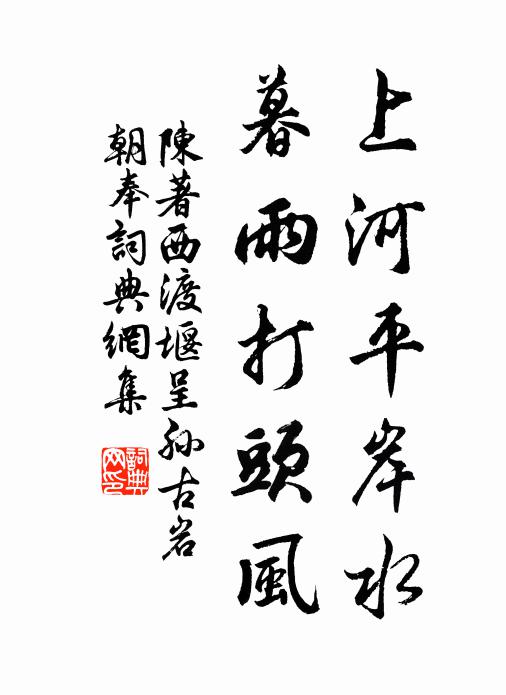 上河平岸水
暮雨打頭風
陳著西渡堰呈孫古岩
朝奉詞典網集
詞典網印